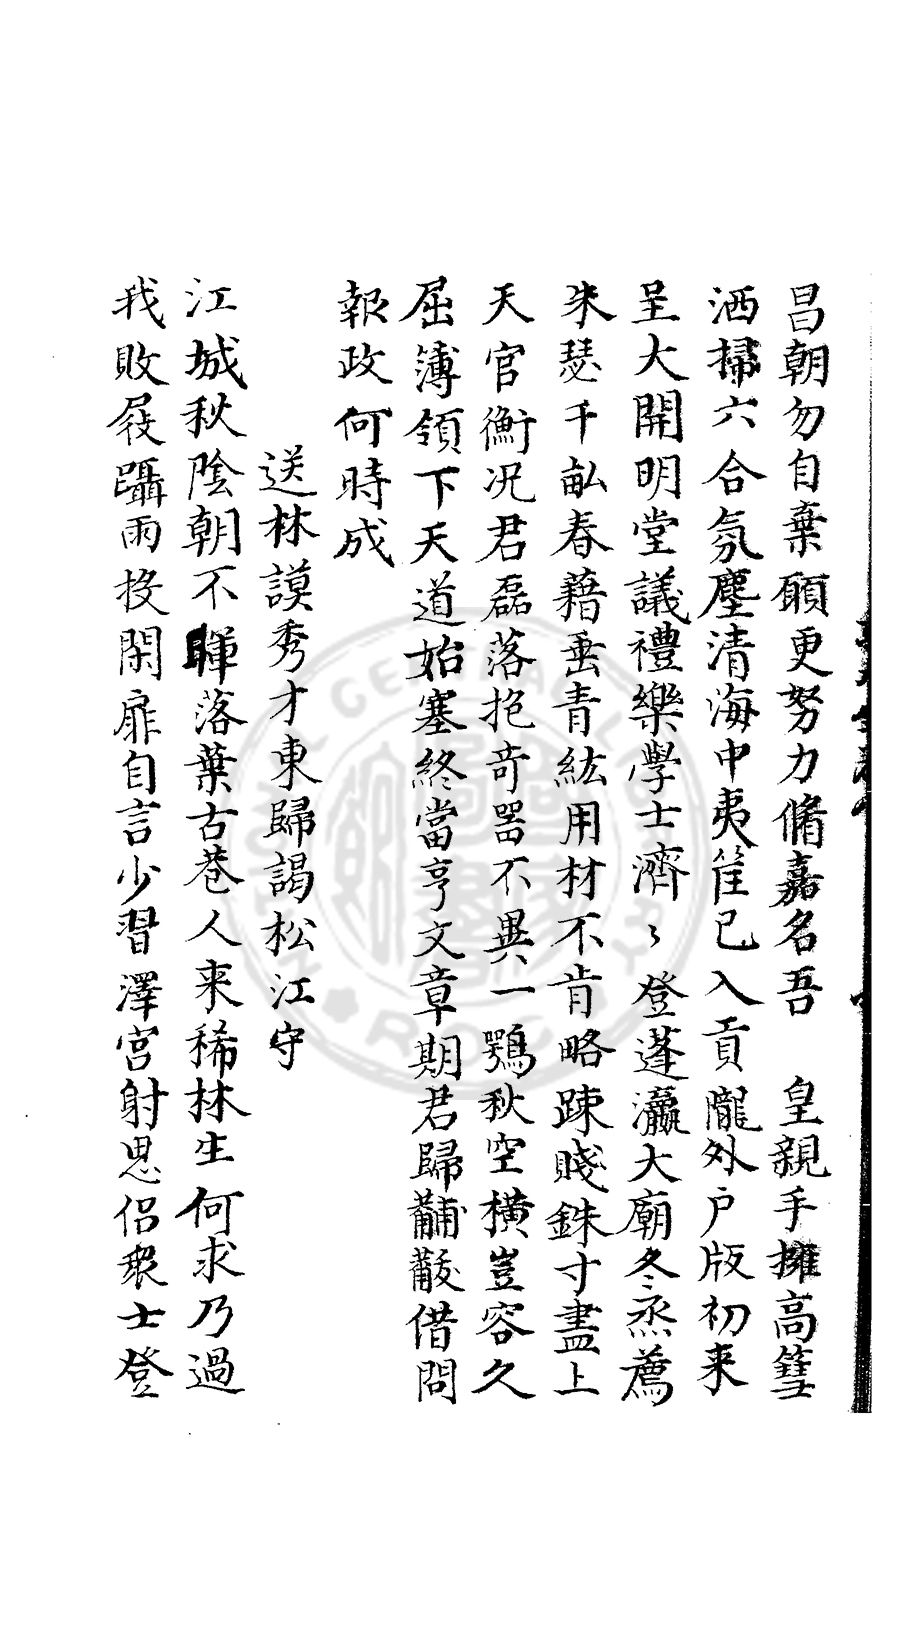 昌朝勿自棄願更努力脩嘉名吾　皇親手擁高篲
洒掃六合氛塵清海中夷筐已入貢隴外戶版初来
呈大開明堂議禮樂學士濟〻登蓬瀛大廟冬烝薦
朱瑟千畝春藉垂青紘用材不肯略踈賤銖寸盡上
天官衡况君磊落抱竒器不異一鶚秋空橫豈容久
屈簿領下天道始塞終當亨文章期君歸黼黻借問
報政何時成
送林謨秀才東歸謁松江守
江城秋陰朝不暉落葉古巷人来稀林生何求乃過
我敗屐躡雨投閑扉自言少習澤宮射思侶衆士登
NATIONAL CENTRAL LIBRARY R.O.C.